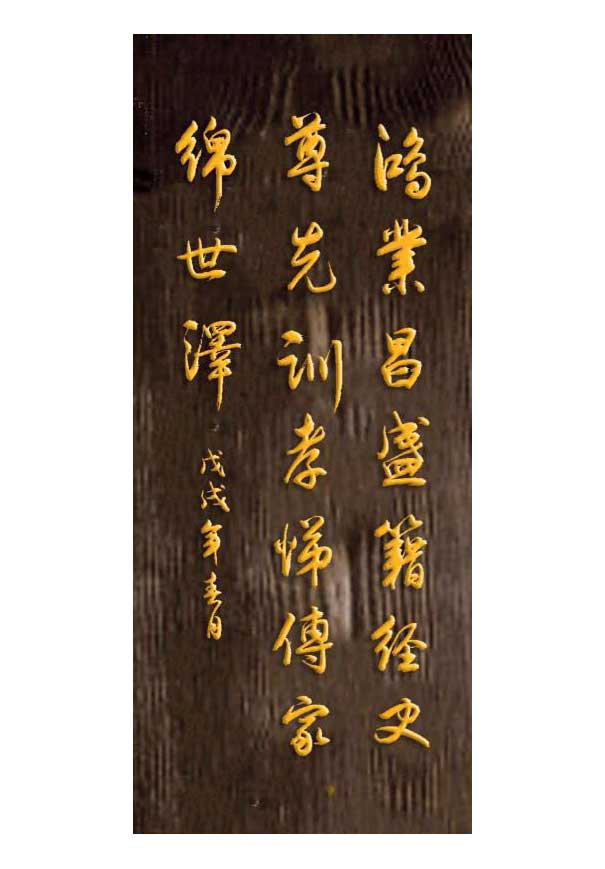 鸿業昌盛籍经史
尊先训孝悌傳家
綿世澤
戊戌年春月